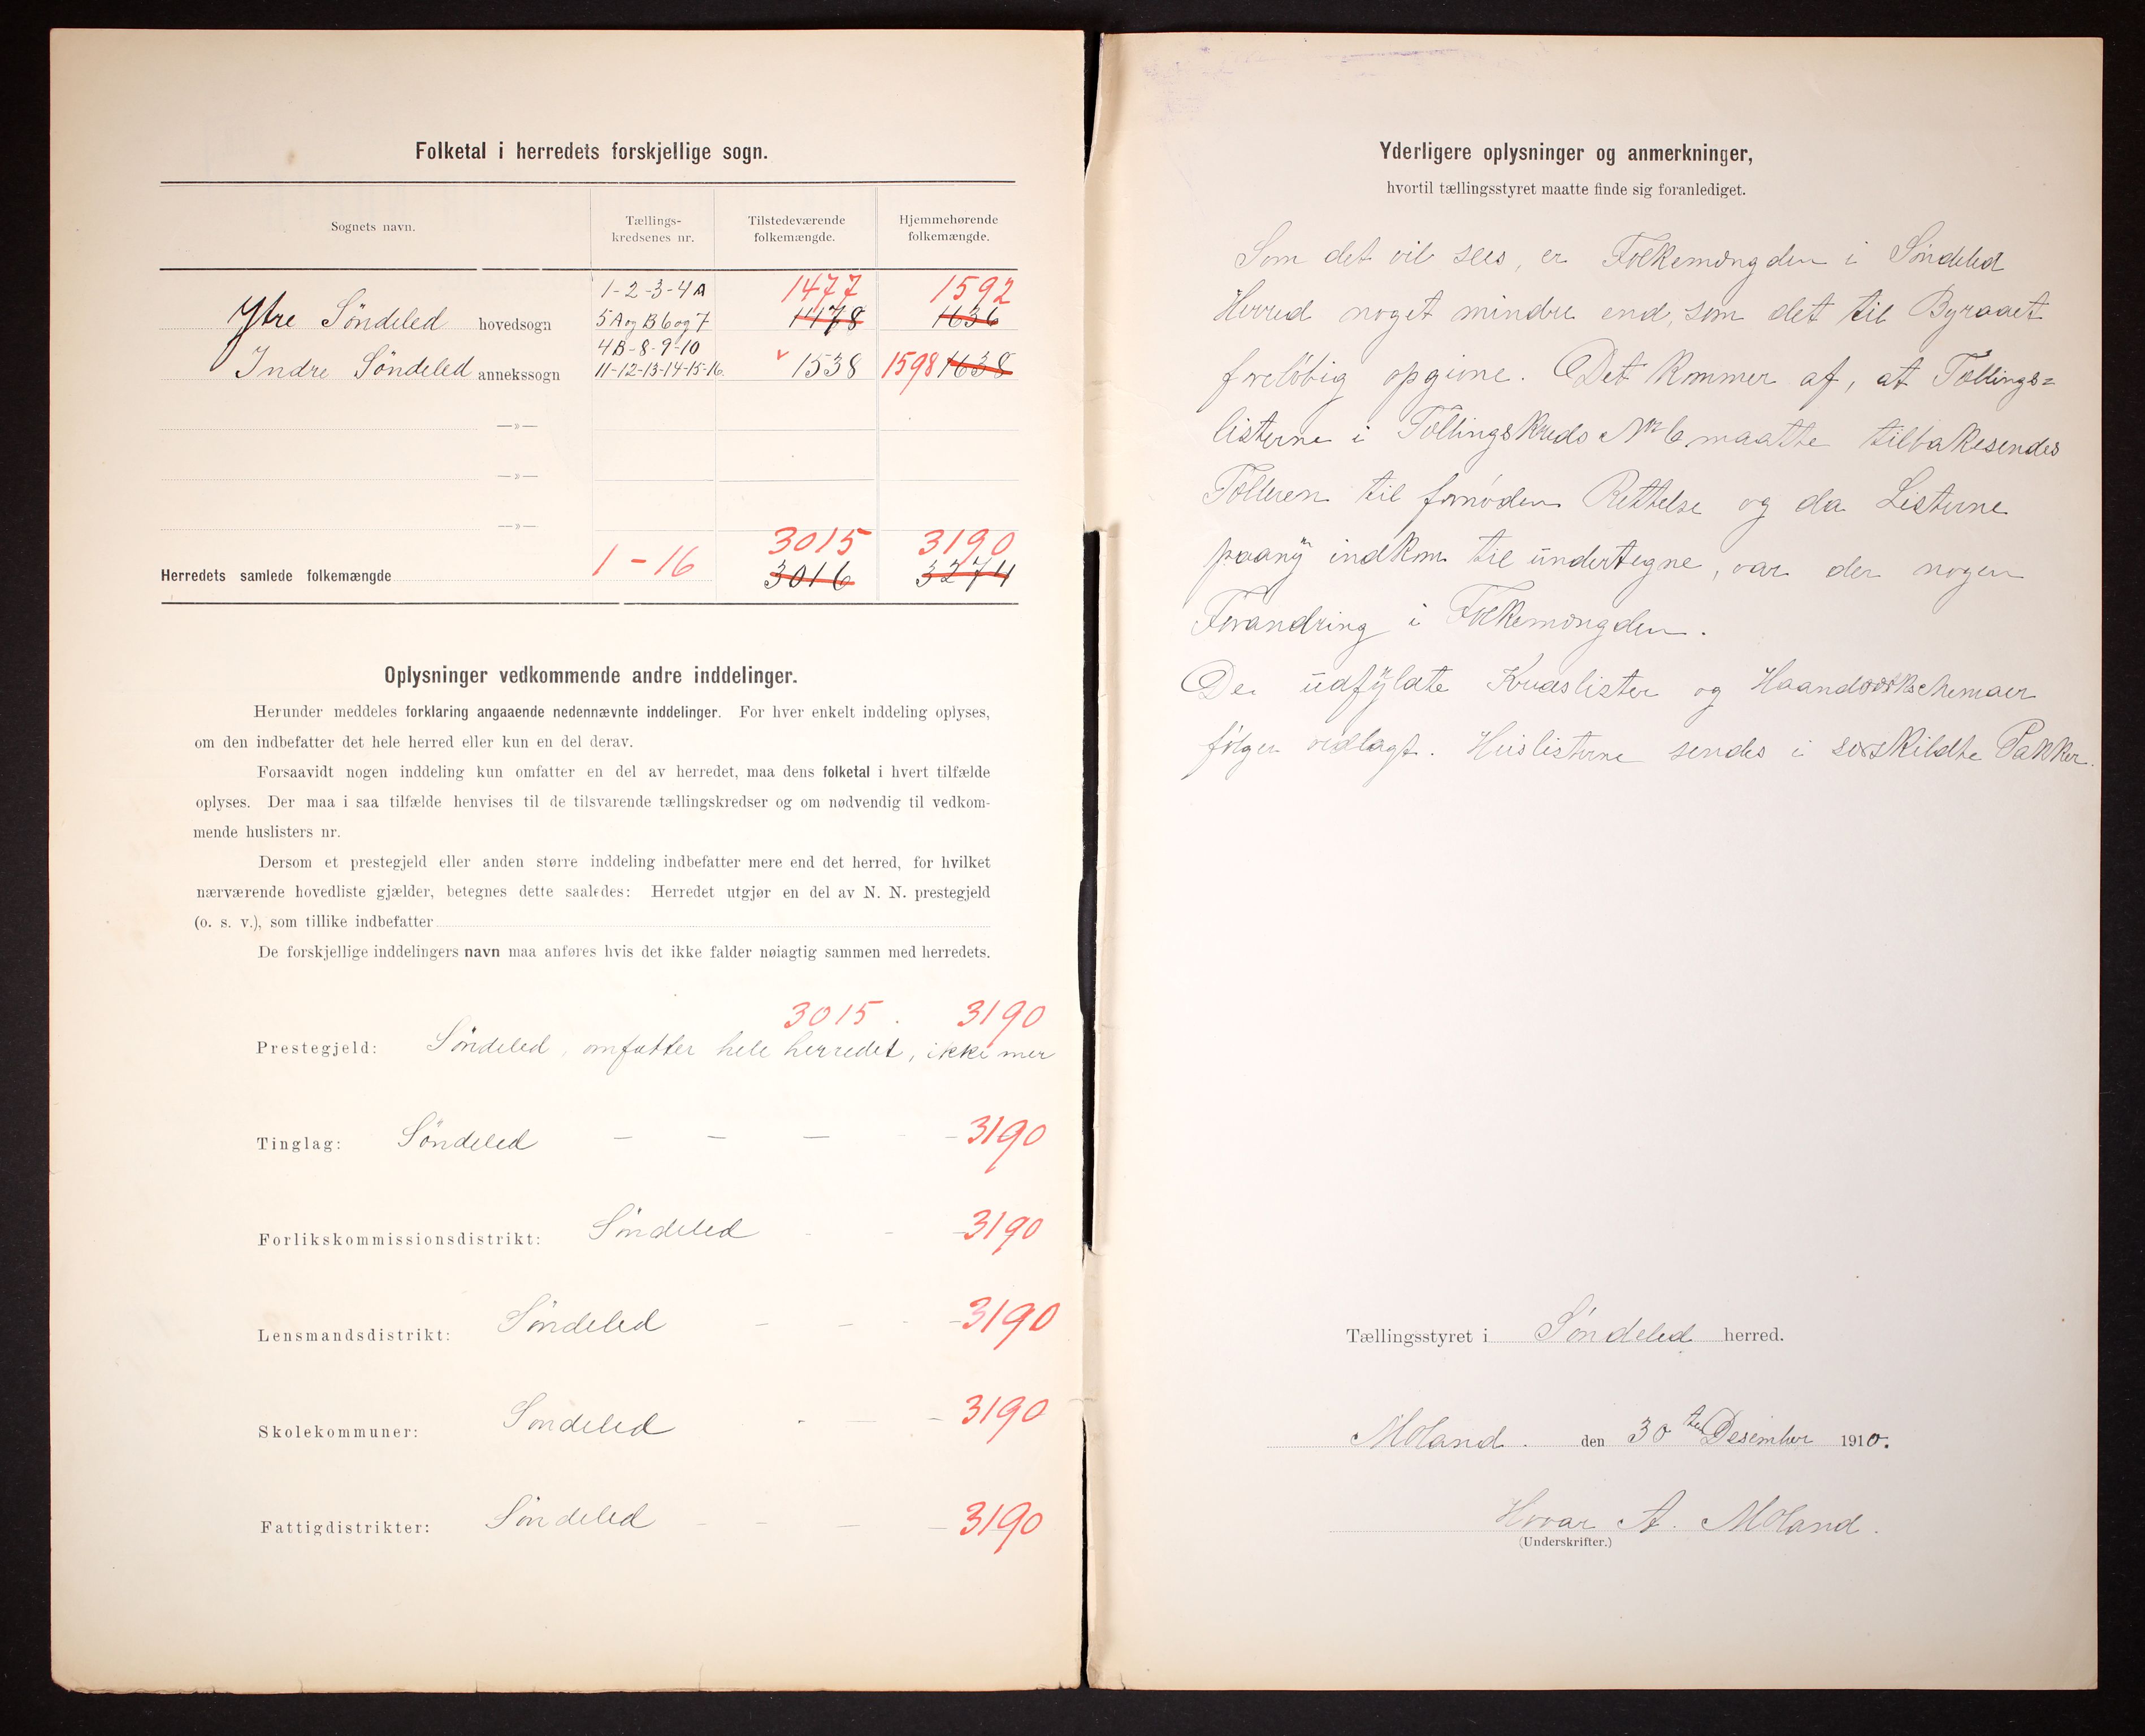 Folketal i herredets forskjellige sogn.
Sognets navn.
Tællings-
kredsenes nr.
Tilstedeværende
folkemængde.
Hjemmehørende
folkemængde.
1-2-3-4A 1477 1592
Ytre Söndeled hovedsogn 5A og B 6 og 7 1478 1636
4B-8-9-10
Indre Söndeled annekssogn 11-12-13-14-15-16. v 1538 1598 1638
—»—
—»—
—»—
3015 3190
Herredets samlede folkemængde 1-16 3016 3274
Oplysninger vedkommende andre inddelinger.
Herunder meddeles forklaring angaaende nedennævnte inddelinger. For hver enkelt inddeling oplyses,
om den indbefatter det hele herred eller kun en del derav.
Forsaavidt nogen inddeling kun omfatter en del av herredet, maa dens folketal i hvert tilfælde
oplyses. Der maa i saa tilfælde henvises til de tilsvarende tællingskredser og om nødvendig til vedkom-
mende huslisters nr.
Dersom et prestegjeld eller anden større inddeling indbefatter mere end det herred, for hvilket
nærværende hovedliste gjælder, betegnes dette saaledes: Herredet utgjør en del av N. N. prestegjeld
(o. s. v.), som tillike indbefatter
De forskjellige inddelingers navn maa anføres hvis det ikke falder nøiagtig sammen med herredets.
3015. 3190
Prestegjeld: Söndeled, omfatter hele herredet, ikke mer
Tinglag: Söndeled — — — - - 3190
Forlikskommissionsdistrikt: Söndeled - - - 3190
Lensmandsdistrikt: Söndeled — — - - 3190
Skolekommuner: Söndeled - — - 3190
Fattigdistrikter: Söndeled - - — - 3190
Yderligere oplysninger og anmerkninger,
hvortil tællingsstyret maatte finde sig foranlediget.
Som det vil sees, er Folkemængden i Söndeled
Herred noget mindre end, som det til Byraaet
forelöbig opgivne. Det kommer af, at Tællings=
listerne i Tællingskreds No 6 maatte tilbakesendes
Tælleren til fornöden Rettelse og da Listerne
paany indkom til undertegne, var der nogen
Forandring i Folkemængden.
De udfyldte Kredslister og Haandværkschemaer
fölger vedlagt. Huslisterne sendes i særskildte Pakker.
Tællingsstyret i Söndeled herred.
Moland. den 30 te Desember 1910.
Hovar A. Moland.
(Underskrifter.)